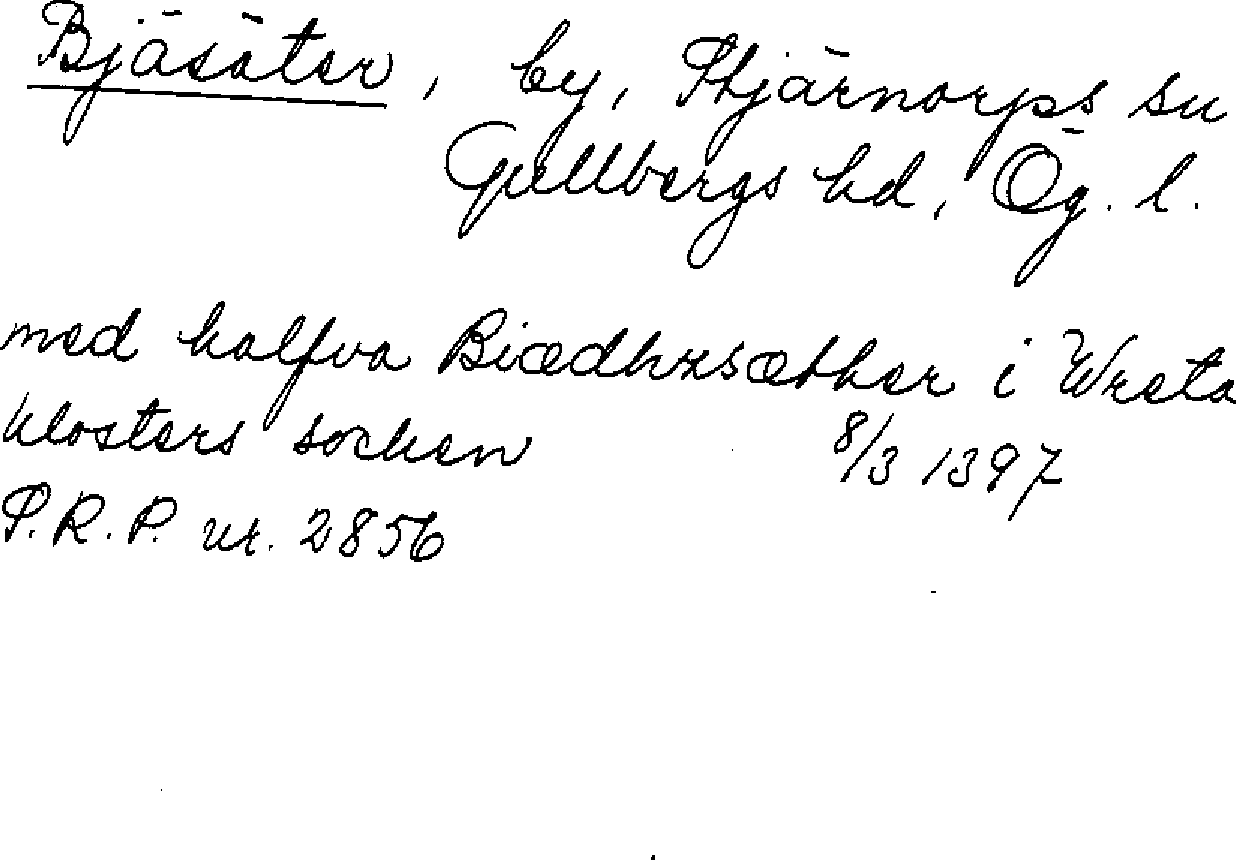 Bjäsäter, by, Stjärnorps sn
Gullbergs hd, Ög. l.
med halfva Biædhxsæther i Wreta
klosters socken 8/3 1397
S.R.P. nr. 2856